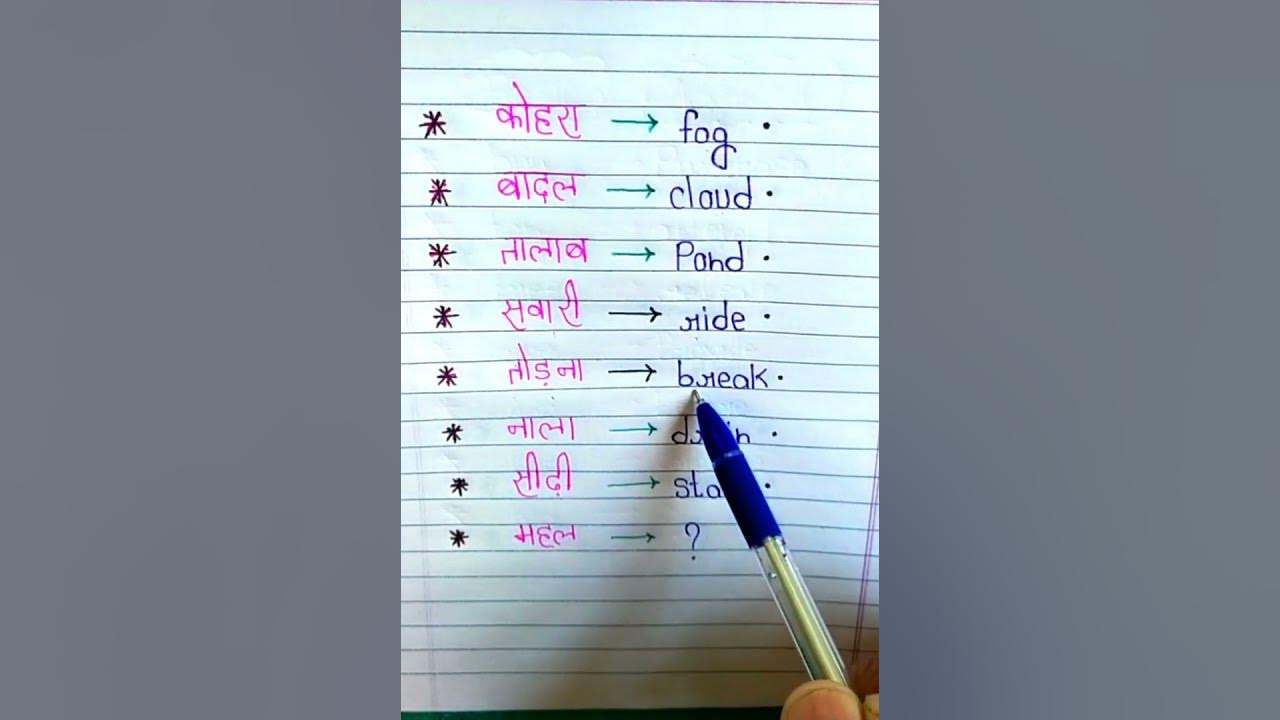 * कोहरा → fog .
* बादल → cloud .
* तालाब → Pond .
* सवारी → ride .
* तोड़ना → break .
* नाला →
* सीढ़ी →
* महल → ?